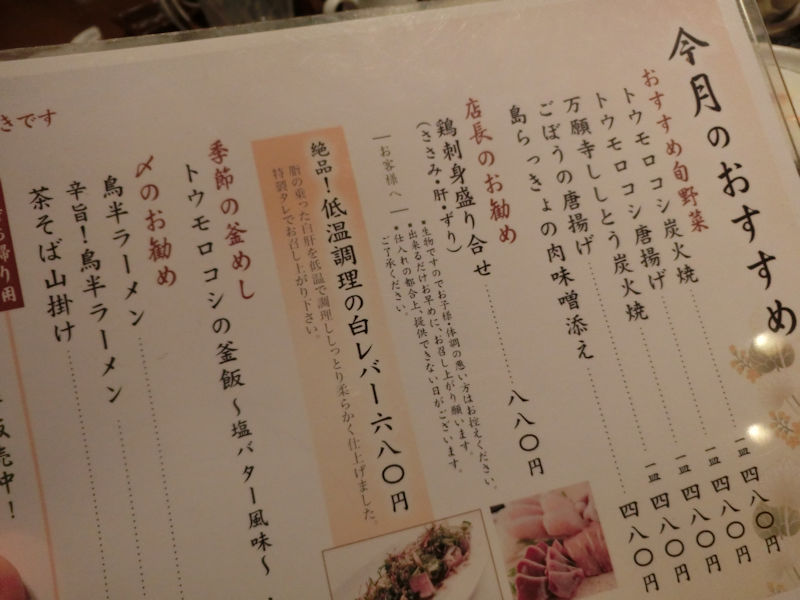 今月のおすすめ
おすすめ旬野菜
トウモロコシ炭火焼 一皿 四八〇円
トウモロコシ唐揚げ 一皿 四八〇円
万願寺ししとう炭火焼 一皿 四八〇円
ごぼうの唐揚げ 一皿 四八〇円
島らっきょの肉味噌添え 四八〇円
店長のお勧め
鶏刺身盛り合せ 八八〇円
(ささみ・肝・ずり)
―お客様へ―
・生物ですのでお子様・体調の悪い方はお控えください。
・出来るだけお早めに、お召し上がり願います。
・仕入れの都合上、提供できない日がございます。
ご了承ください。
絶品！低温調理の白レバー六八〇円
脂の乗った白肝を低温で調理ししっとり柔らかく仕上げました。
特製タレでお召し上がり下さい。
季節の釜めし
トウモロコシの釜飯 〜塩バター風味〜
〆のお勧め
鳥半ラーメン
辛旨！鳥半ラーメン
茶そば山掛け
きです
帰り用
販売中！